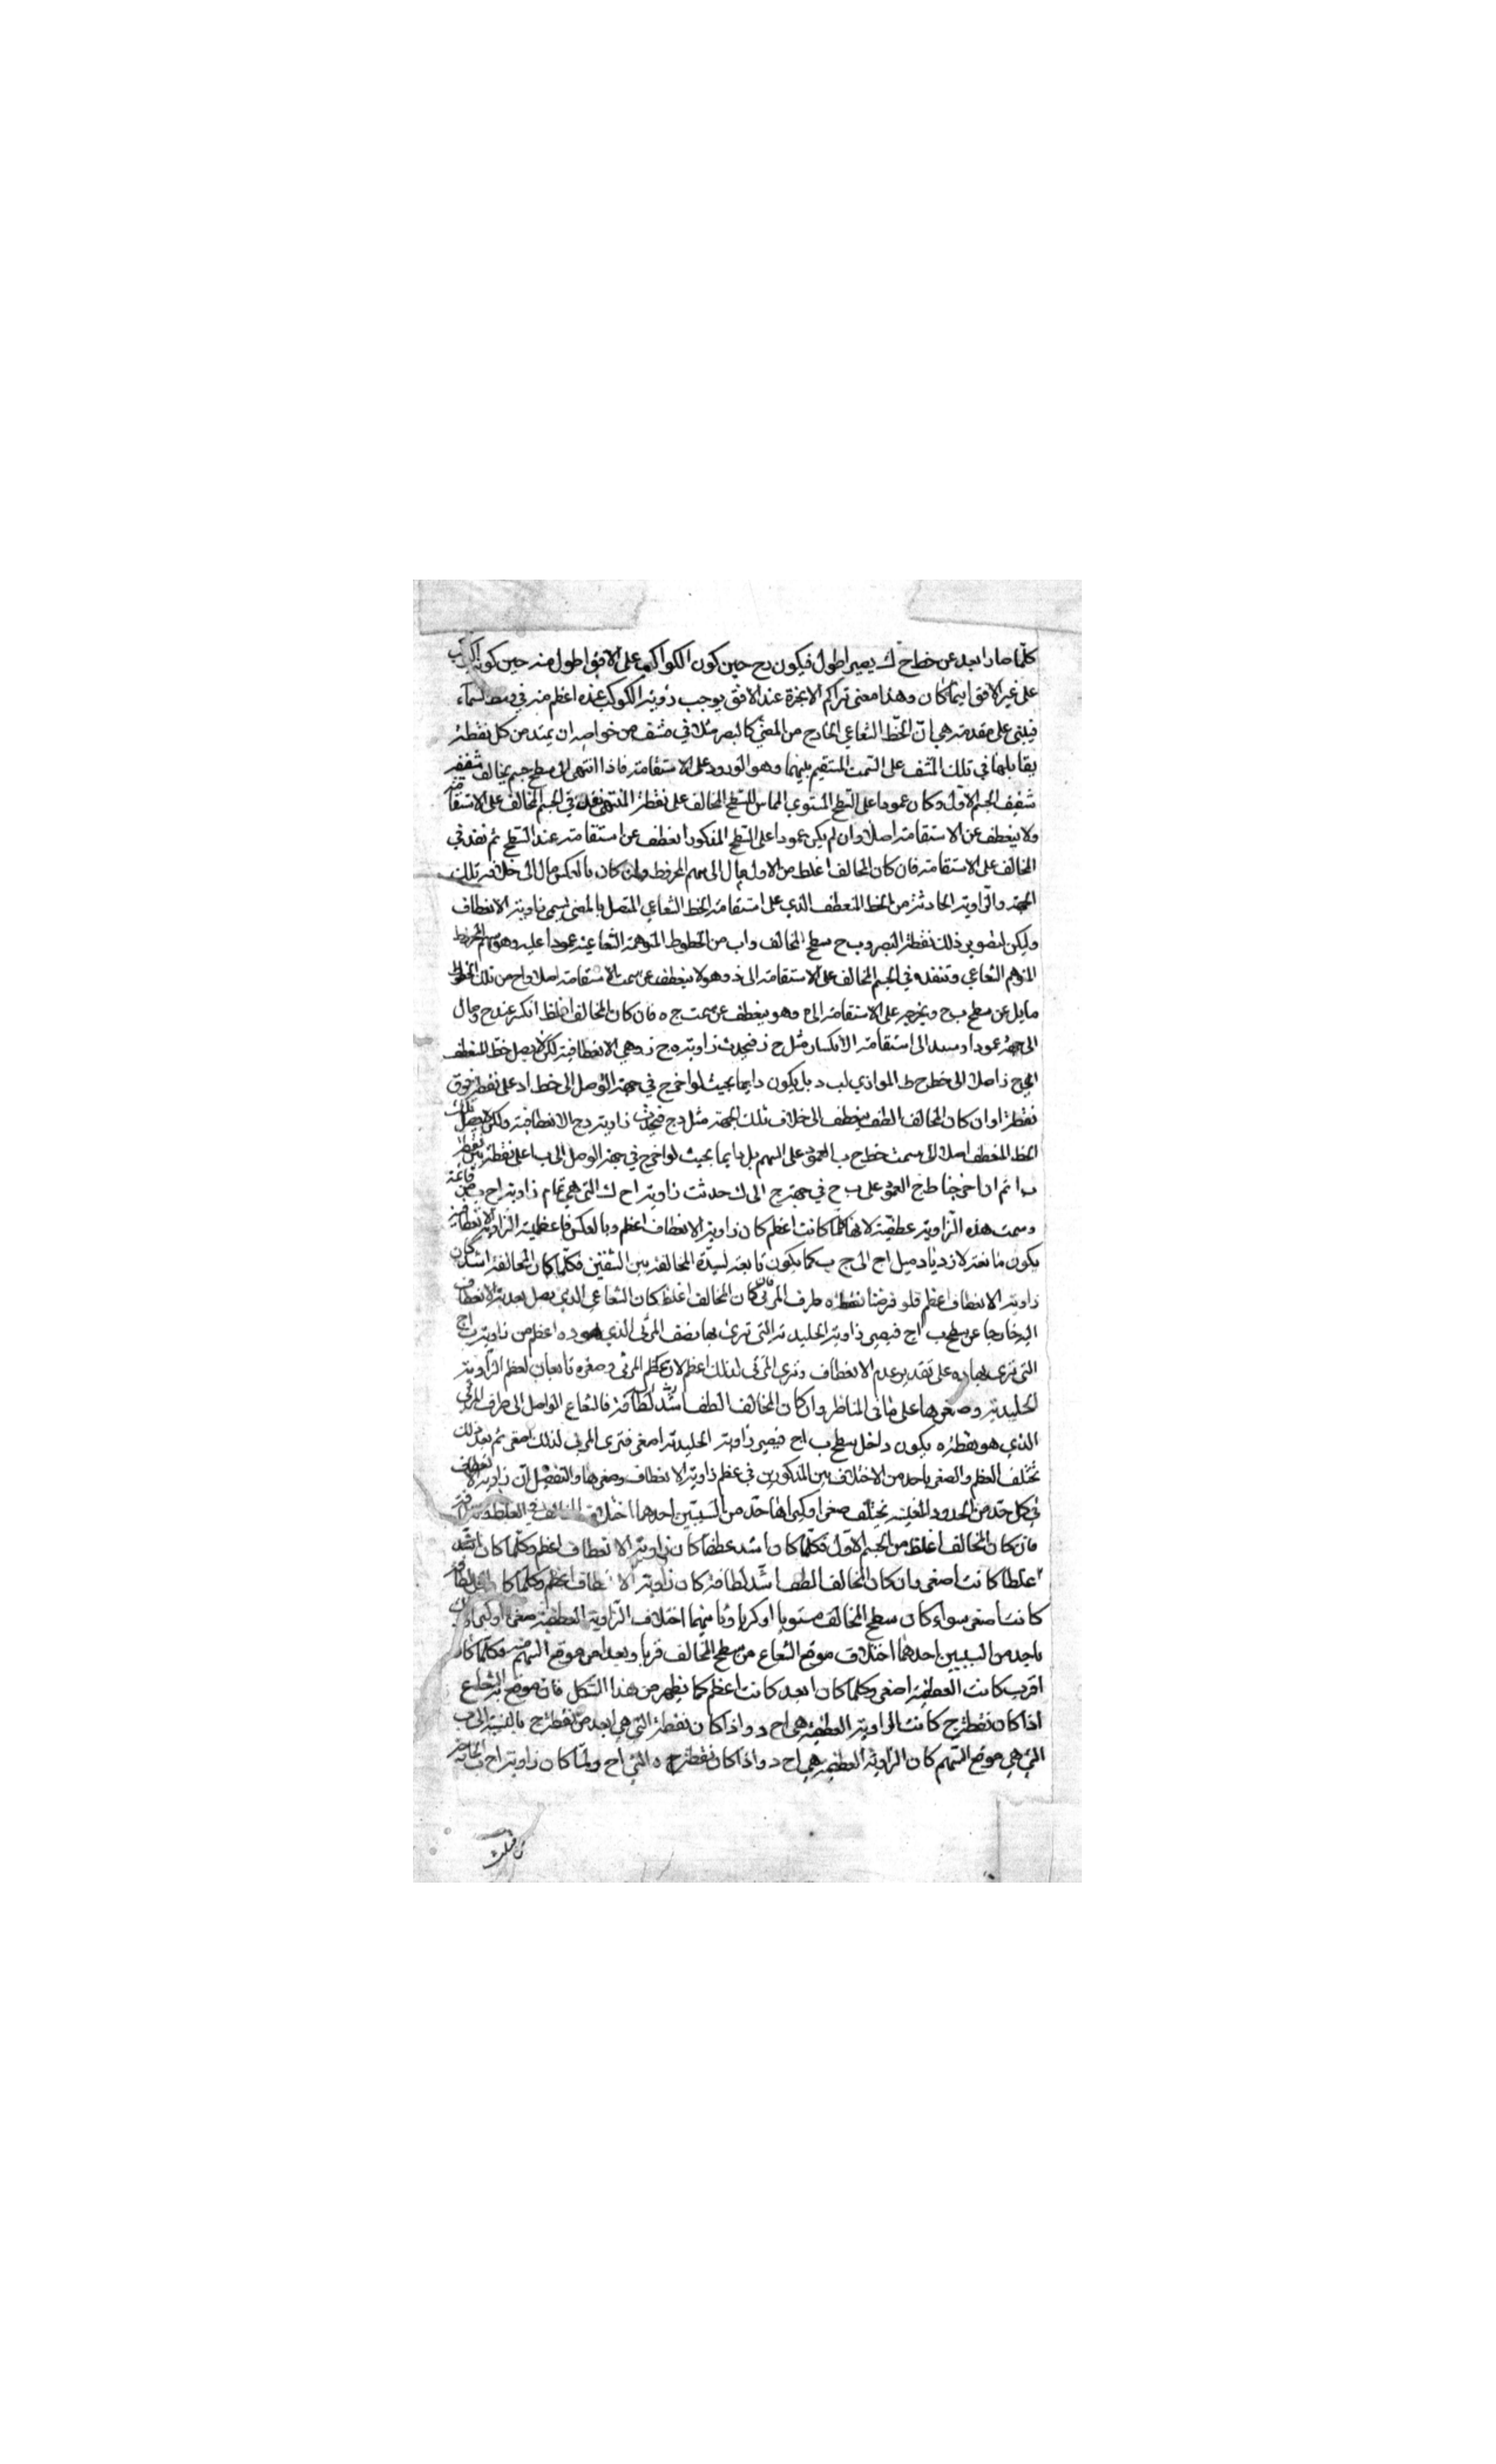 كلما صار ابعد عن خط اح ك يصير اطول فيكون دح حين كون الكواكب على الافق اطول منه حين كونه
على غير الافق اينما كان وهذا معنى تراكم الابخرة عند الافق يوجب رؤية الكوكب عنده اعظم منه في وسط السماء
فيبتنى على مقدمة هي ان الخط الشعاعي الخارج من المضئ كالبصر مثلا في مشف من خواصه ان يمتد من كل نقطة
يقابلها في تلك المشف على السمت المستقيم بينهما وهو الورود على الاستقامة فاذا انتهى الى سطح جسم يخالف شفيفه
شفيف الجسم الاول وكان عمودا على السطح المستوي المماس للسطح المخالف على نقطة المنتهى نفذ في الجسم المخالف على الاستقامة
ولا ينعطف عن الاستقامة اصلا وان لم يكن عمودا على السطح المذكور انعطف عن استقامته عند السطح ثم نفذ في
المخالف على الاستقامة فان كان المخالف اغلظ من الاول مال الى سهم المخروط وان كان بالعكس مال الى خلاف تلك
الجهة والزاوية الحادثة من الخط المنعطف الذي على استقامة الخط الشعاعي المتصل بالمضئ يسمى زاوية الانعطاف
وليكن لتصوير ذلك نقطة ا البصر و ب ح سطح المخالف و اب من الخطوط المتوهمة الشعاعية عمودا عليه وهو سهم المخروط
المتوهم الشعاعي وتنفذه في الجسم المخالف على الاستقامة الى د وهو لا ينعطف عن سمت الاستقامة اصلا و اح من تلك الخطوط
مايل عن سطح ب ح ويخرجه على الاستقامة الى ه وهو ينعطف عن سمت ج ه فان كان المخالف اغلظ انكسر عند ح ومال
الى جهة عمود اد الى استقامة الانكسار مثل ح ز فيحدث زاوية ه ج ز وهي الانعطافية لكن لا يصل خط المنعطف
اعني ح ز اصلا الى خط ح ط الموازي لب د بل يكون دايما بحيث لو اخرج في جهة الوصل الى خط اد على نقطة فوق
نقطة ا وان كان المخالف الطف ينعطف الى خلاف تلك الجهة مثل ج فيحدث زاوية ه ح الانعطافية ولكن لا يصل
الخط المنعطف اصلا الى سمت خط ح ب العمود على السهم بل دايما بحيث لو اخرج في جهة الوصل الى ب ا على نقطة بين
ب ا ثم اذا اخرجنا ط ج العمود على ب ح في جهة ج الى ك حدثت زاوية اح ك التي هي تمام زاوية اح ب من قائمة
وسميت هذه الزاوية عطفية لانها كلما كانت اعظم كان زاوية الانعطاف اعظم وبالعكس فاعظمية الزاوية الانعطافية
يكون تابعة لازدياد ميل اج الى ج ب كما يكون تابعة لشدة المخالفة بين الشفتين فكلما كان المخالفة اشد كان
زاوية الانعطاف اعظم فلو فرضنا نقطة ه طرف المرئي فان كان المخالف اغلظ كان الشعاعي الذي يصل بعد الانعطاف
اليه خارجا عن سطح ب اج فيصير زاوية الجليدية التي ترى بها نصف المرئي الذي هو د ه اعظم من زاوية ب اج
التي ترى بها د ه على تقدير عدم الانعطاف وترى المرئي لذلك اعظم لان عظم المرئي وصغره تابعان لعظم الزاوية
الجليدية وصغرها على ما في المناظر وان كان المخالف الطف اشد لطافة فالشعاع الواصل الى طرف المرئي
الذي هو نقطة ه يكون داخل سطح ب اح فيصير زاوية الجليدية اصغر فترى المرئي لذلك اصغر ثم بعد ذلك
تختلف العظم والصغر باحد من الاختلافين المذكورين في عظم زاوية الانعطاف وصغرها والتفصيل ان زاوية الانعطاف
في كل حد من الحدود المعينة يختلف صغرا وكبرا باحد من السببين احدهما اختلاف المخالف في الغلظ
فان كان المخالف اغلظ من الجسم الاول فكلما كان اشد غلظا كان زاوية الانعطاف اعظم وكلما كان اشد
غلظا كانت اصغر وان كان المخالف الطف اشد لطافة كان زاوية الانعطاف اعظم وكلما كان اقل لطافة
كانت اصغر سواء كان سطح المخالف مستويا او كريا وثانيهما اختلاف الزاوية العطفية صغرا وكبرا
باحد من السببين احدهما اختلاف موقع الشعاع من سطح المخالف قربا وبعدا من موقع السهم فكلما كان
اقرب كانت العطفية اصغر وكلما كان ابعد كانت اعظم كما يظهر من هذا الشكل فان موقع الشعاع
اذا كان نقطة ج كانت الزاوية العطفية هي اح د واذا كان نقطة التي هي ابعد من نقطة ج بالنسبة الى ب
التي هي موقع السهم كان الزاوية العطفية هي اح د واذا كان نقطة ح ه التي اح ولما كان زاوية اح ب